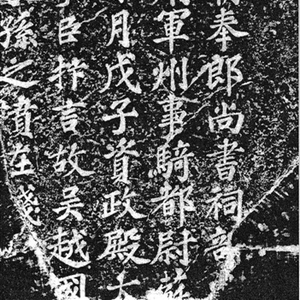 奉郎尚書祠部
軍州事騎都尉蘇
月戊子資政殿大
臣抃言故吳越國
孫之墳在錢